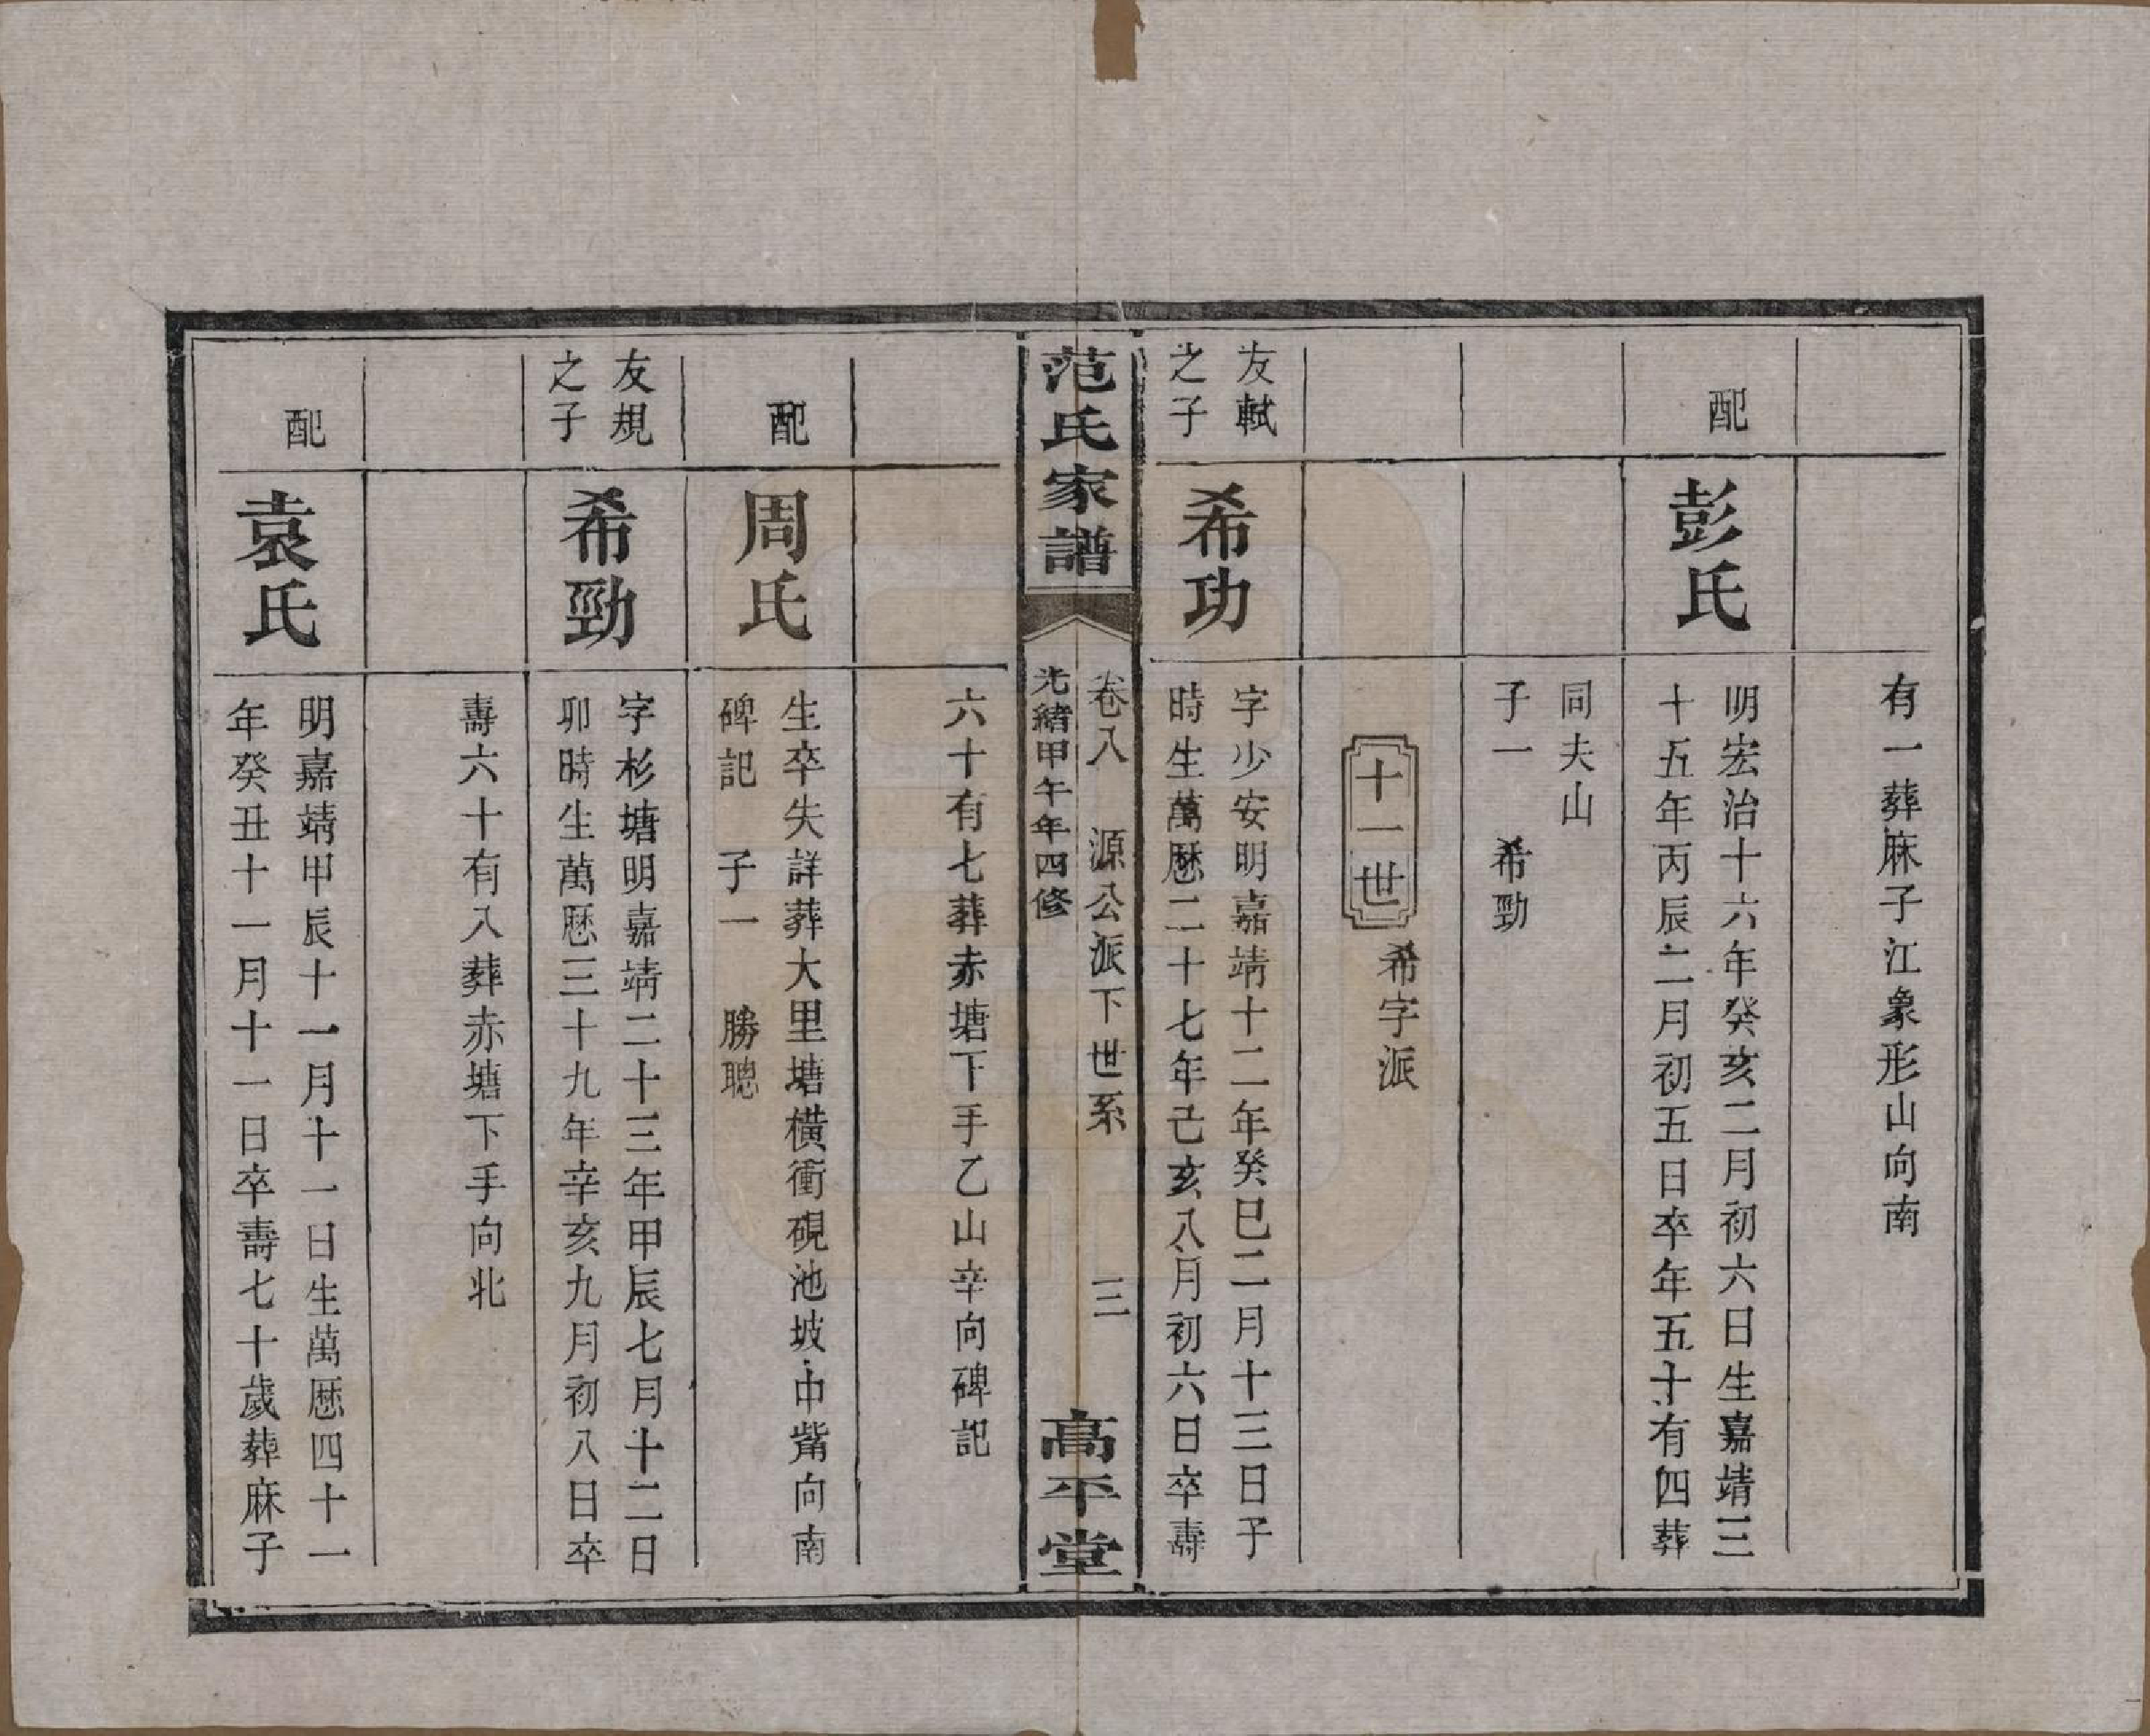 有一葬麻子江象形山向南
配
彭氏
明宏治十六年癸亥二月初六日生嘉靖三
十五年丙辰二月初五日卒年五十有四葬
同夫山
子一　希勁
十一世
希字派
友軾
之子
希功
字少安明嘉靖十二年癸巳二月十三日子
時生萬厯二十七年己亥八月初六日卒壽
范氏家譜
卷八　源公派下世系　三
光緒甲午年四修
高平堂
六十有七葬赤塘下手乙山辛向碑記
配
周氏
生卒失詳葬大里塘橫衝硯池坡中觜向南
碑記　子一　勝聰
友規
之子
希勁
字杉塘明嘉靖二十三年甲辰七月十二日
卯時生萬厯三十九年辛亥九月初八日卒
壽六十有八葬赤塘下手向北
配
袁氏
明嘉靖甲辰十一月十一日生萬厯四十一
年癸丑十一月十一日卒壽七十歲葬麻子